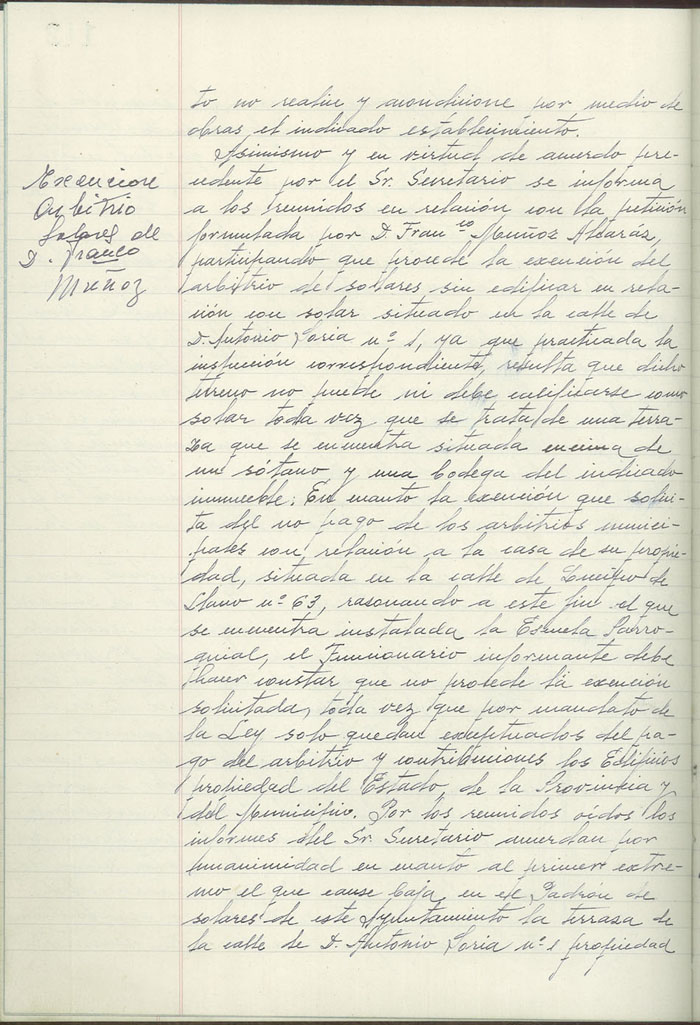 to no realice y acondicione por medio de
obras, el indicado establecimiento.
Exencione
Arbitrio
Solares de
D. Franco
Muñoz
Asimismo y en virtud de acuerdo pre-
cedente por el Sr. Secretario se informa
a los reunidos en relación con la petición
formulada por D. Franco Muñoz Alcaráz,
participando que procede la exención del
arbitrio de solares sin edificar en rela-
ción con solar situado en la calle de
D. Antonio Soria nº 1, ya que practicada la
inspección correspondiente, resulta que dicho
terreno no puede ni debe calificarse como
solar toda vez que se trata de una terra-
za que se encuentra situada encima de
un sótano y una bodega del indicado
inmueble. En cuanto la exención que solici-
ta del no pago de los arbitrios munici-
pales con relación a la casa de su propie-
dad, situada en la calle de Queipo de
Llano nº 63, rasonando a este fin el que
se encuentra instalada la Escuela Parro-
quial, el Funcionario informante debe
hacer constar que no procede la exención
solicitada, toda vez que por mandato de
la Ley solo quedan exceptuados del pa-
go del arbitrio y contribuciones los Edificios
propiedad del Estado, de la Provincia y
del Municipio. Por los reunidos oídos los
informes del Sr. Secretario acuerdan por
unanimidad en cuanto al primer extre-
mo el que cause baja en el Padrón de
solares de este Ayuntamiento la terraza de
la calle de D. Antonio Soria nº 1 propiedad